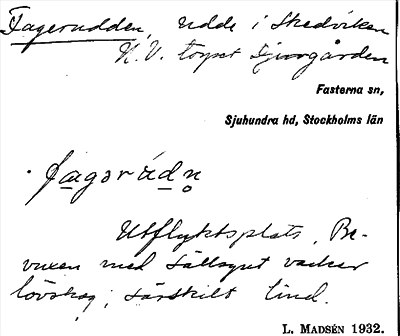 Fagerudden, udde i Skedviken
N.V. torpet Djurgården
Fasterna sn,
Sjuhundra hd, Stockholms län
fagərúdn̥
Utflyktsplats. Be-
vuxen med sällsynt vacker
lövskog; särskilt lind.
L. MADSÉN 1932.